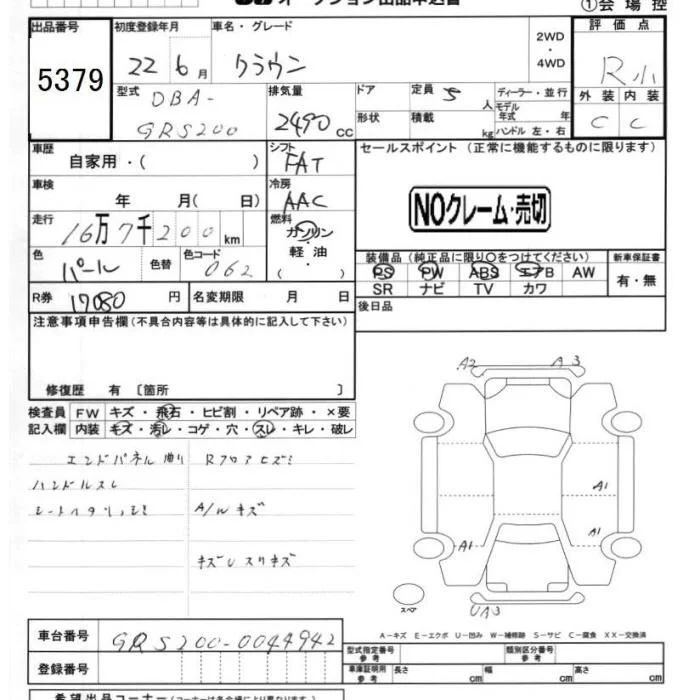 ①会場控
出品番号 初度登録年月 車名・グレード 2WD・4WD 評価点
5379 22年6月 クラウン R小
型式 DBA-GRS200 排気量 2490cc ドア 形状 定員 5人 積載 kg ディーラー・並行 モデル年式 年 ハンドル 左・右 外装 内装
C C
車歴 自家用・( ) シフト FAT セールスポイント(正常に機能するものに限ります)
車検 年 月( 日) 冷房 AAC
NOクレーム・売切
走行 16万7千200km 燃料 ガソリン・軽油・( )
色 パール 色替 色コード 062
装備品(純正品に限り○をつけてください) 新車保証書
PS PW ABS エアB AW 有・無
SR ナビ TV カワ
R券 17080円 名変期限 月 日 後日品
注意事項申告欄(不具合内容等は具体的に記入して下さい)
修復歴 有 〔箇所 〕
検査員 FW キズ・飛石・ヒビ割・リペア跡・×要
記入欄 内装 キズ・汚レ・コゲ・穴・スレ・キレ・破レ
エンドパネル曲り Rフロアヒズミ
ハンドルスレ
A/Wキズ
キズUスリキズ
A2 A3
A1
A1 A1
スペア
UA3
A-キズ E-エクボ U-凹み W-補修跡 S-サビ C-腐食 XX-交換済
車台番号 GRS200-0044942
登録番号
型式指定番号 参考 類別区分番号 参考
車庫証明用 参考 長さ cm 幅 cm 高さ cm
希望出品コーナー